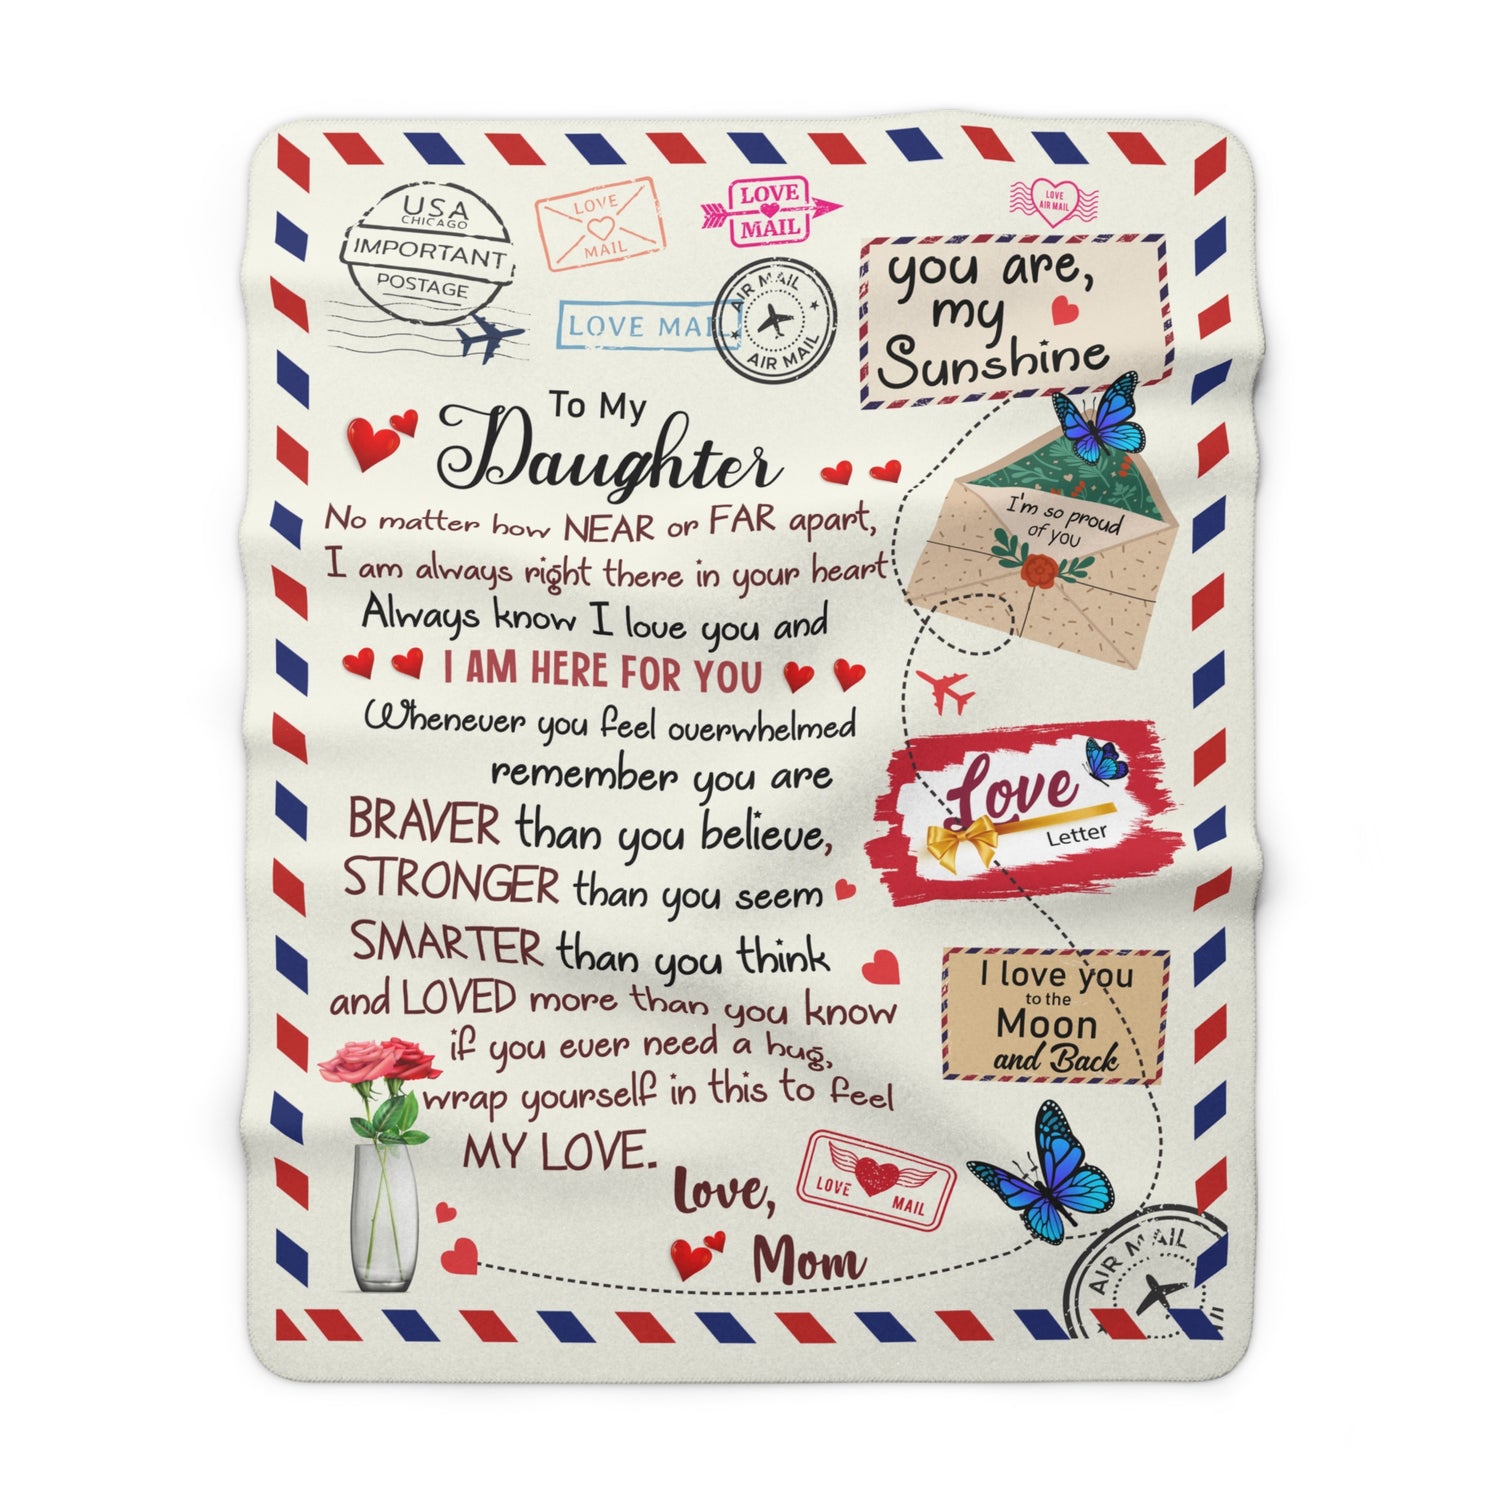 USA
CHICAGO
IMPORTANT
POSTAGE
LOVE
MAIL
LOVE
MAIL
LOVE
AIR MAIL
LOVE MAIL
AIR MAIL
AIR MAIL
you are,
my
Sunshine
To My
Daughter
No matter how NEAR or FAR apart,
I am always right there in your heart
Always know I love you and
I AM HERE FOR YOU
Whenever you feel overwhelmed
remember you are
BRAVER than you believe,
STRONGER than you seem
SMARTER than you think
and LOVED more than you know
if you ever need a hug,
wrap yourself in this to feel
MY LOVE.
Love,
Mom
I'm so proud
of you
Love
Letter
I love you
to the
Moon
and Back
LOVE MAIL
AIR MAIL